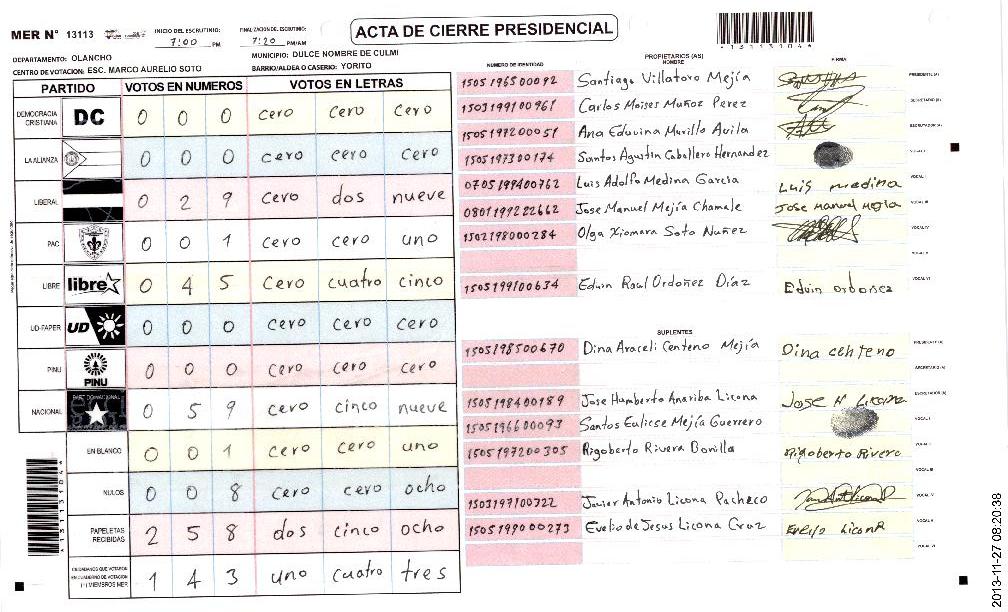 MER N° 13113
INICIO DEL ESCRUTINIO: 7:00 PM
FINALIZACION DEL ESCRUTINIO: 7:20 PM/AM
ACTA DE CIERRE PRESIDENCIAL
*1311310 4*
DEPARTAMENTO: OLANCHO
MUNICIPIO: DULCE NOMBRE DE CULMI
CENTRO DE VOTACION: ESC. MARCO AURELIO SOTO
BARRIO/ALDEA O CASERIO: YORITO
PARTIDO VOTOS EN NUMEROS VOTOS EN LETRAS
DEMOCRACIA CRISTIANA DC 0 0 0 cero cero cero
LA ALIANZA 0 0 0 cero cero cero
LIBERAL 0 2 9 cero dos nueve
PAC 0 0 1 cero cero uno
LIBRE libre 0 4 5 cero cuatro cinco
UD-FAPER UD 0 0 0 cero cero cero
PINU PINU 0 0 0 cero cero cero
NACIONAL 0 5 9 cero cinco nueve
EN BLANCO 0 0 1 cero cero uno
NULOS 0 0 8 cero cero ocho
PAPELETAS RECIBIDAS 2 5 8 dos cinco ocho
CIUDADANOS QUE VOTARON EN CUADERNO DE VOTACION (+) MIEMBROS MER 1 4 3 uno cuatro tres
PROPIETARIOS (AS)
NUMERO DE IDENTIDAD NOMBRE FIRMA
1505196500092 Santiago Villatoro Mejía PRESIDENTE (A)
1503199100961 Carlos Moises Muñoz Perez SECRETARIO (A)
1505197200051 Ana Eduvina Murillo Avila ESCRUTADOR (A)
1505197300174 Santos Agustin Caballero Hernandez VOCAL I
0705199400762 Luis Adolfo Medina Garcia Luis medina VOCAL II
0801199222662 Jose Manuel Mejía Chamale Jose Manuel Mejia VOCAL III
1502198000284 Olga Xiomara Soto Nuñez VOCAL IV
VOCAL V
1505199100634 Edwin Raul Ordoñez Díaz Edwin ordoñez VOCAL VI
SUPLENTES
1505198500670 Dina Araceli Centeno Mejía Dina centeno PRESIDENTE (A)
SECRETARIO (A)
1505198400189 Jose Humberto Anariba Licona Jose H Licona ESCRUTADOR (A)
1505196600093 Santos Eulicse Mejía Guerrero VOCAL I
1505197200305 Rigoberto Rivera Bonilla Rigoberto Rivera VOCAL II
VOCAL III
1503197100322 Javier Antonio Licona Pacheco VOCAL IV
1505199000273 Evelio de Jesus Licona Cruz Evelio Licona VOCAL V
VOCAL VI
2013-11-27 08:20:38